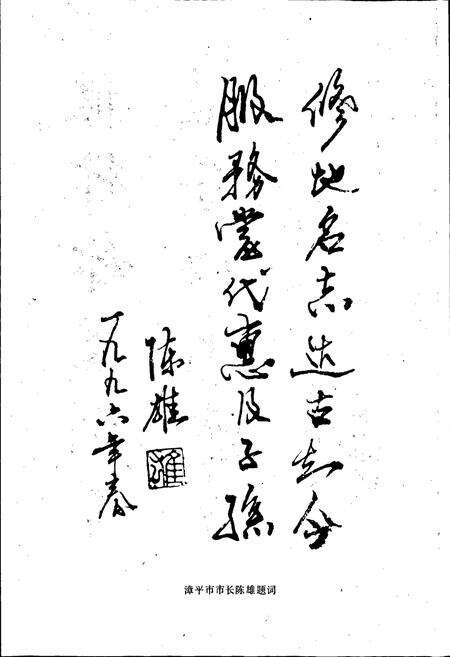 修地名志造古知今
服務當代惠及子孫
陈雄
雄
一九九六年春
漳平市市长陈雄题词